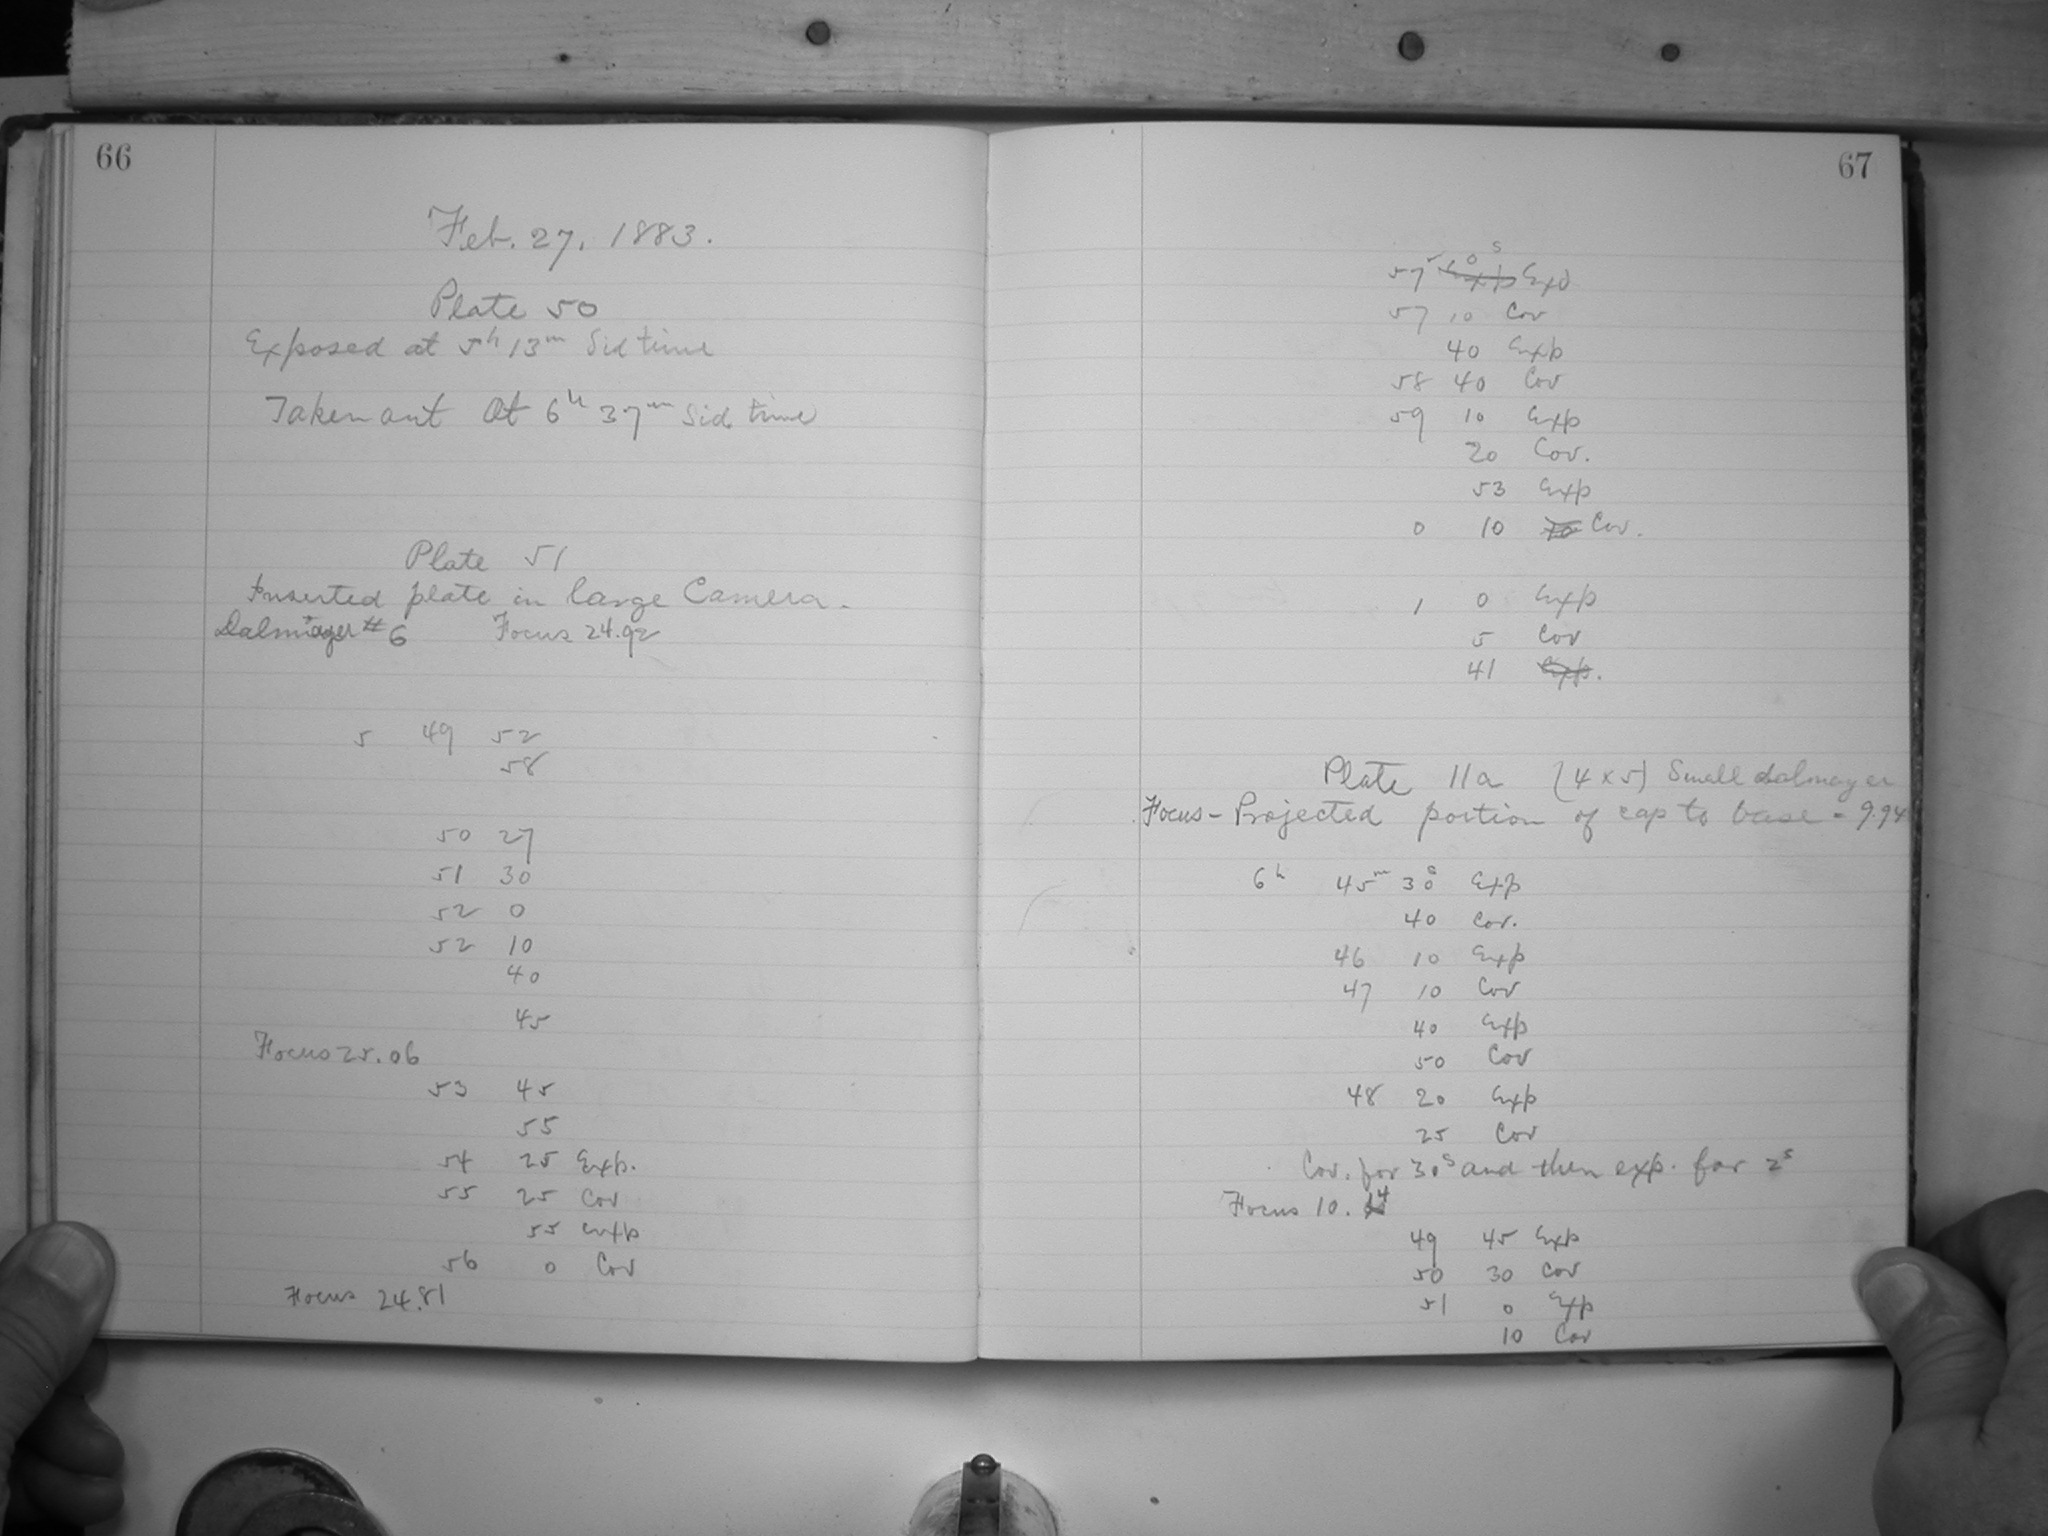 66
Feb. 27, 1883.
Plate 50
Exposed at 5h 13m Sid time
Taken out At 6h 37m Sid time
Plate 51
Inserted plate in large Camera.
Dalmayer # 6 Focus 24.92
5 49 52
58
50 27
51 30
52 0
52 10
40
45
Focus 25.06
53 45
55
54 25 Exp.
55 25 Cov
55 exp
56 0 Cov
Focus 24.81
67
57 0s Exp
57 10 Cov
40 Exp
58 40 Cov
59 10 Exp
20 Cov.
53 Exp
0 10 Cov.
1 0 Exp
5 Cov
41 Exp.
Plate 11a (4 x 5) Small dalmayer
Focus - Projected portion of cap to base = 9.94
6h 45m 30s Exp
40 Cov.
46 10 Exp
47 10 Cov
40 Exp
50 Cov
48 20 Exp
25 Cov
Cov. for 30s and then exp. for 2s
Focus 10.
49 45 Exp
50 30 Cov
51 0 Exp
10 Cov